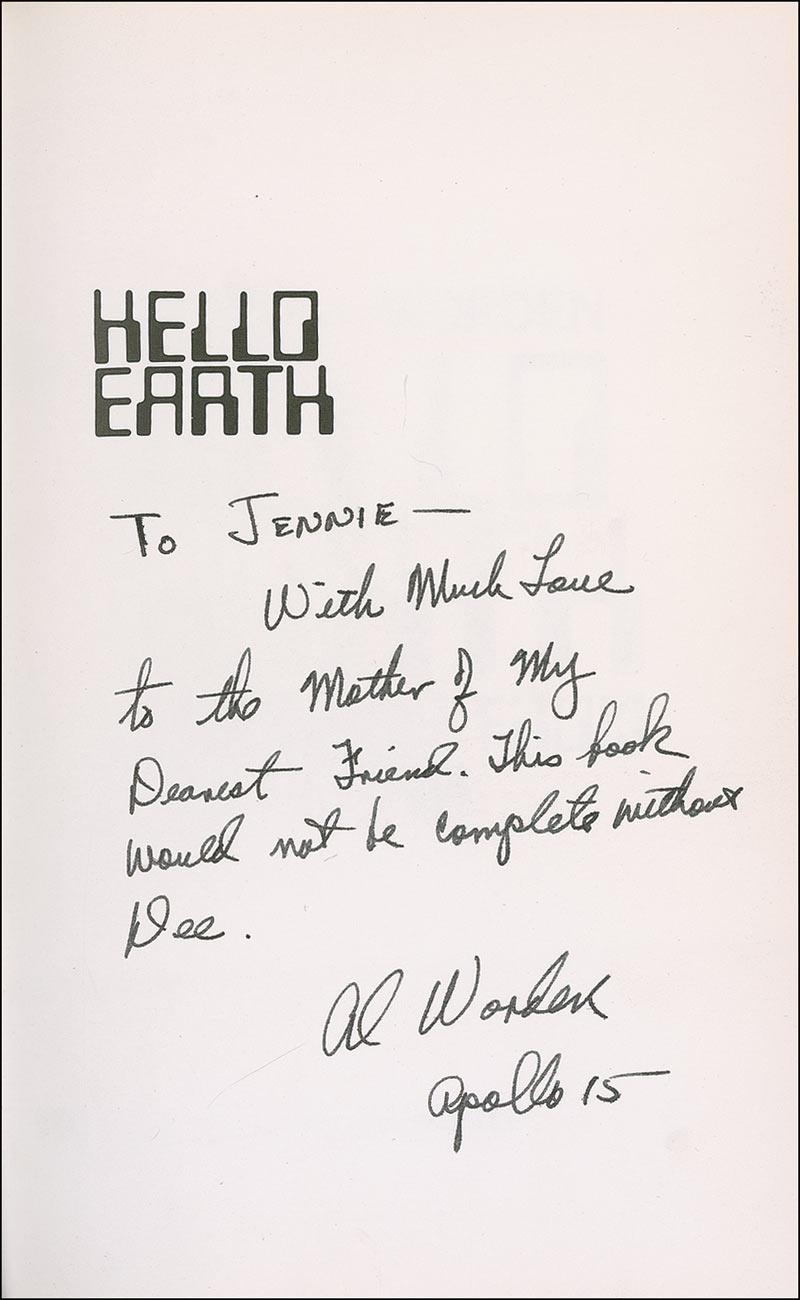 HELLO
EARTH
To JENNIE —
With Much Love
to the Mother of My
Dearest Friend. This book
would not be complete without
Dee.
Al Worden
Apollo 15